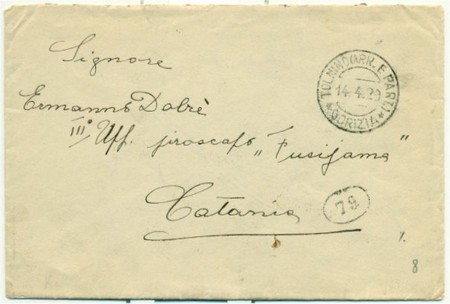 Signore
Ermanno Dobrè
III° Uff. piroscafo „Fusijama"
Catania
TOLMINO (ARR. E PART.)
14.4.29
* GORIZIA *
79
1.
8